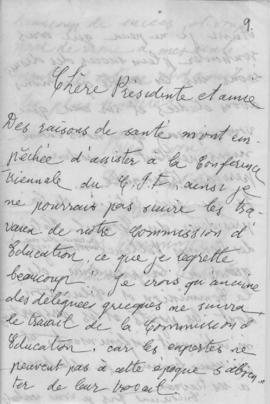 9.
Chère Présidente et amie
Des raisons de santé m'ont em-
pêchée d'assister à la Conférence
Triennale du C.I.F. ainsi je
ne pourrais pas suivre les tra-
vaux de notre Commission d'
Education, ce que je regrette
beaucoup! Je crois qu'aucune
des déléguées grecques ne suivra
le travail de la Commission d'
Education, car les expertes ne
peuvent pas à cette époque s'absen-
ter de leur travail.